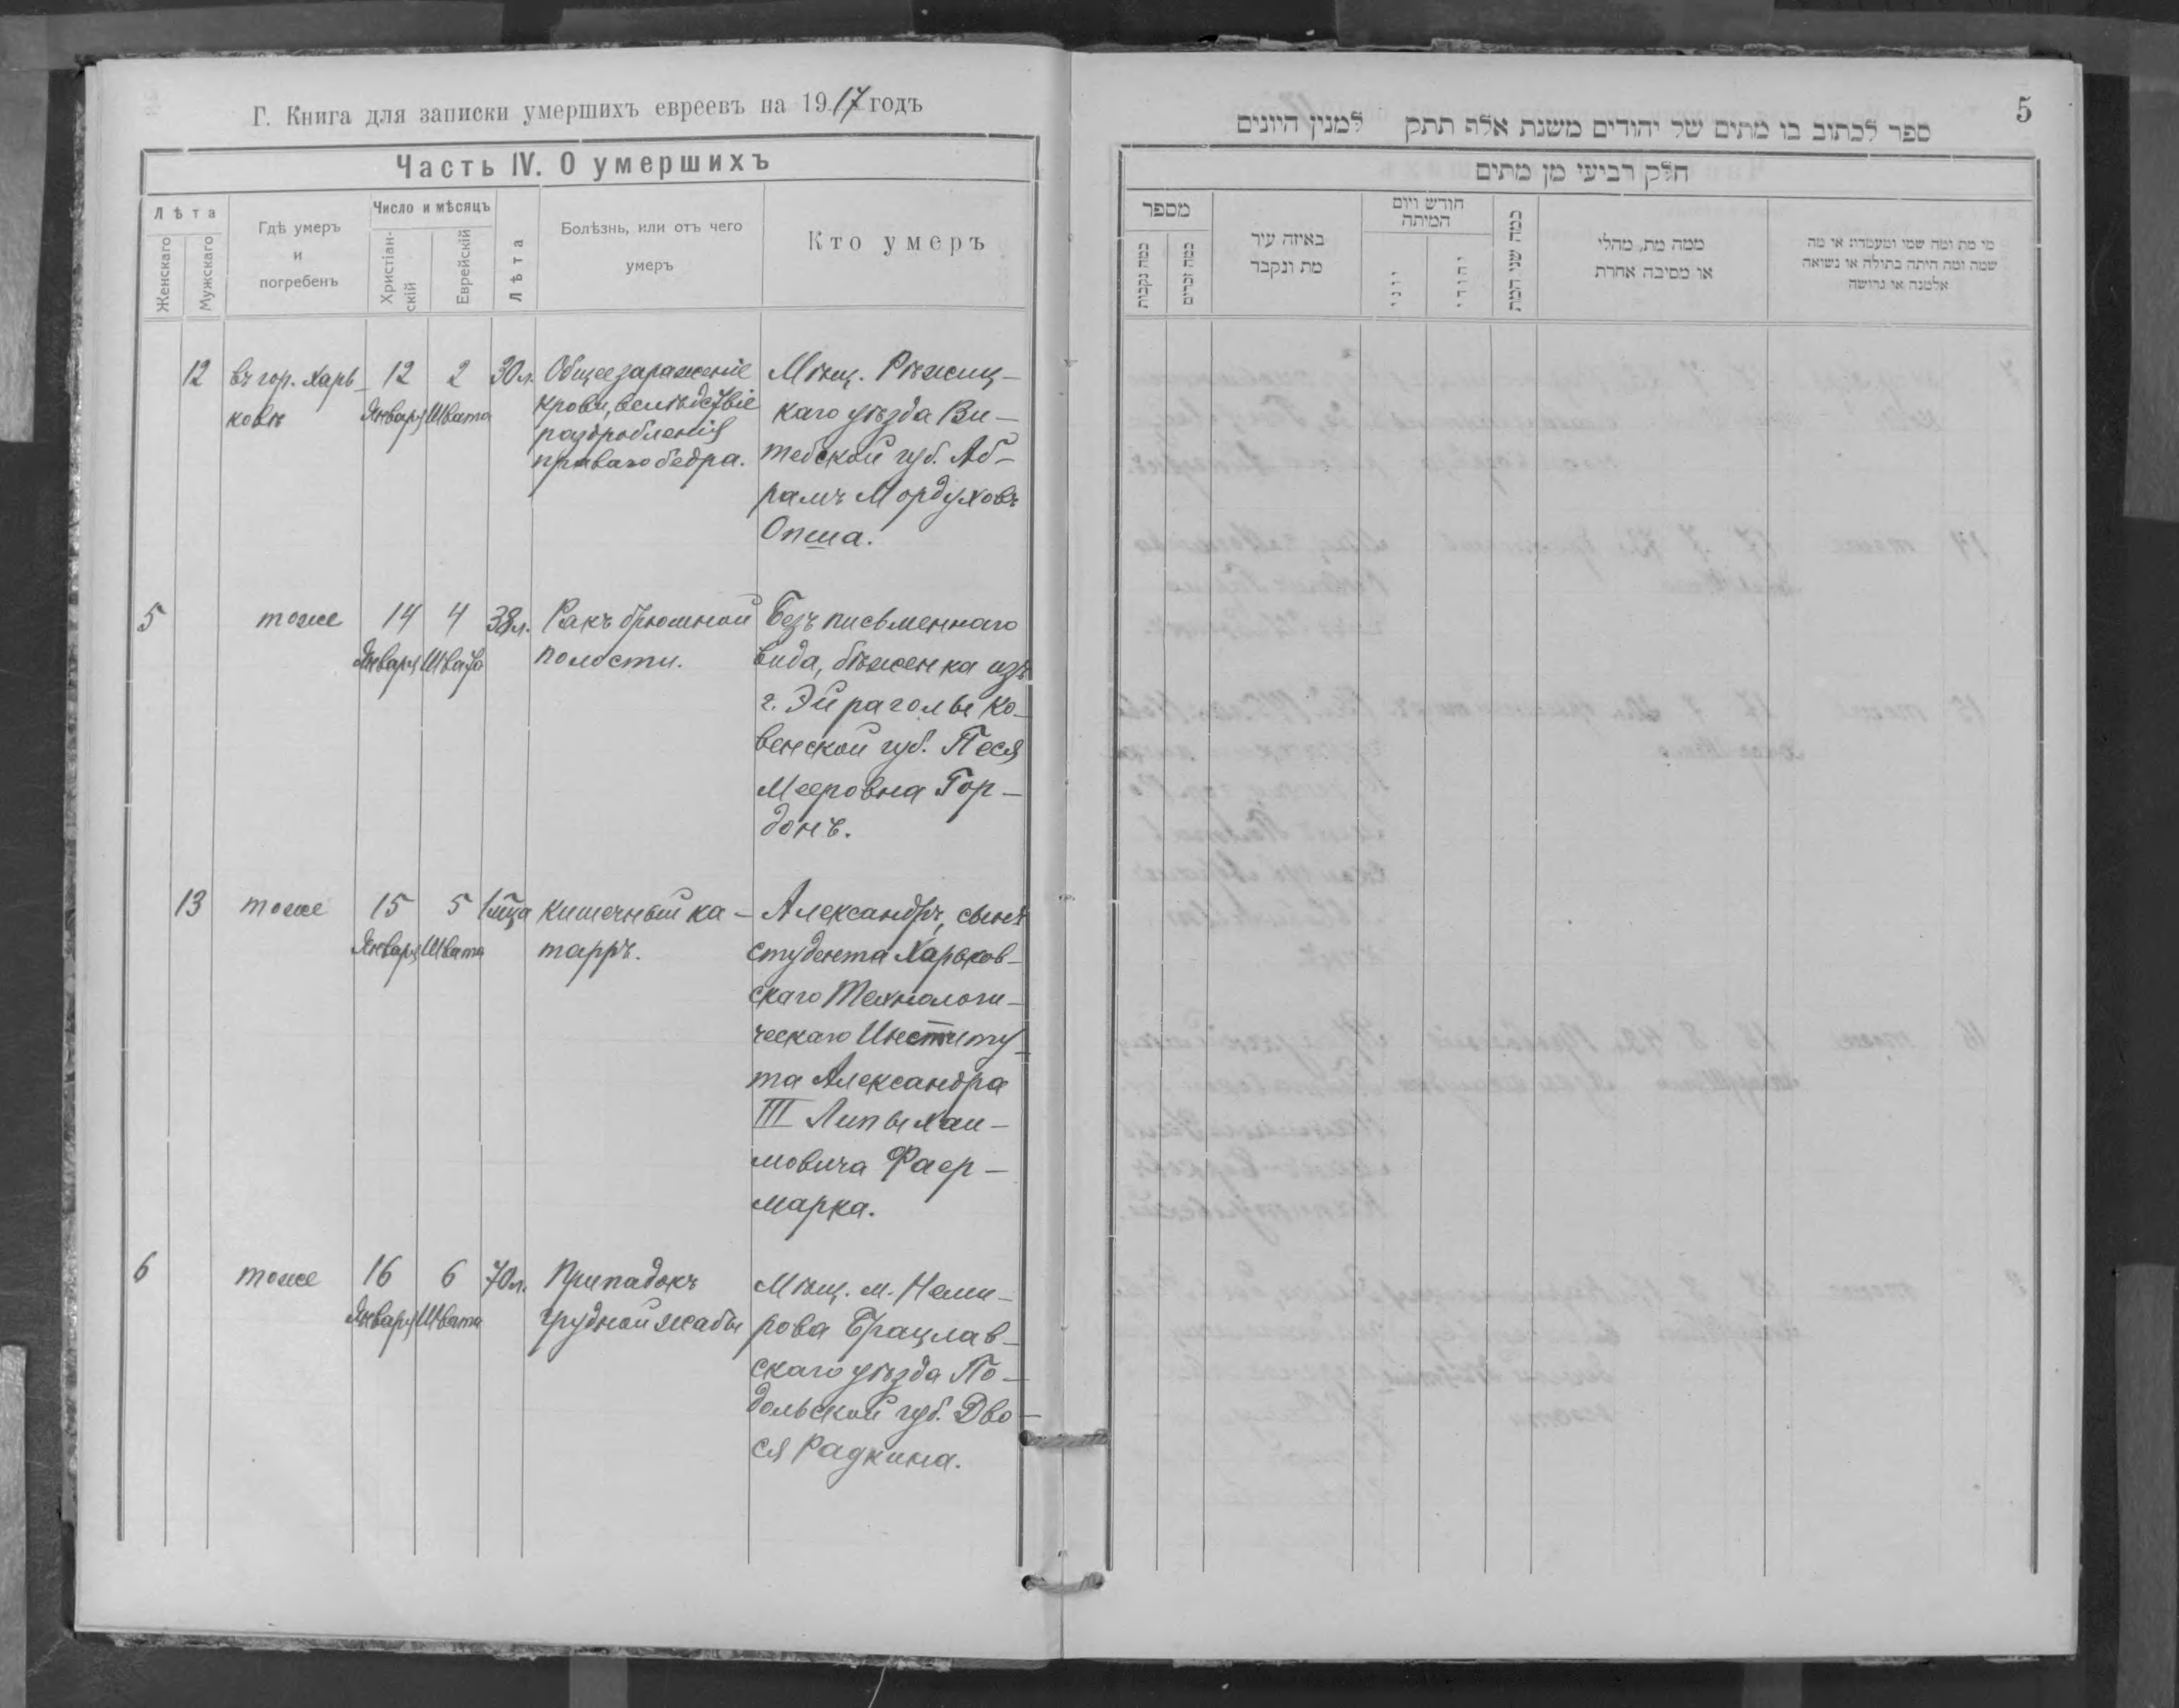 Г. Книга для записки умершихъ евреевъ на 1917 годъ
Часть IV. О умершихъ
Лѣта
Женскаго
Мужскаго
Гдѣ умеръ
и
погребенъ
Число и мѣсяцъ
Христіан-
скій
Еврейскій
Лѣта
Болѣзнь, или отъ чего
умеръ
Кто умеръ
12
въ гор. Харь-
ковѣ
12
Января
2
Швата
30 л.
Общее зараженіе
крови, вслѣдствіе
раздробленія
праваго бедра.
Мѣщ. Рѣжиц-
каго уѣзда Ви-
тебской губ. Аб-
рамъ Мордуховъ
Опша.
5
тоже
14
Января
4
Швата
38 л.
Ракъ брюшной
полости.
Безъ письменнаго
вида, бѣженка изъ
г. Эйраголы Ко-
венской губ. Песя
Мееровна Гор-
донъ.
13
тоже
15
Января
5
Швата
кишечный ка-
тарръ.
Александръ, сынъ
студента Харьков-
скаго Технологи-
ческаго Институ-
та Александра
III Липы Хаи-
мовича Фаер-
марка.
6
тоже
16
Января
6
Швата
70 л.
Припадокъ
грудной жабы
Мѣщ. м. Неми-
рова Брацлав-
скаго уѣзда По-
дольской губ. Дво-
ся Радкина.
5
ספר לכתוב בו מתים של יהודים משנת אלף תתק למנין היונים
חלק רביעי מן מתים
מספר
כמה נקבות
כמה זכרים
באיזה עיר
מת ונקבר
חודש ויום
המיתה
יוני
יהודי
כמה שני המת
ממה מת, מחלי
או מסיבה אחרת
מי מת ומה שמו ומעמדו או מה
שמה ומה היתה בתולה או נשואה
אלמנה או גרושה